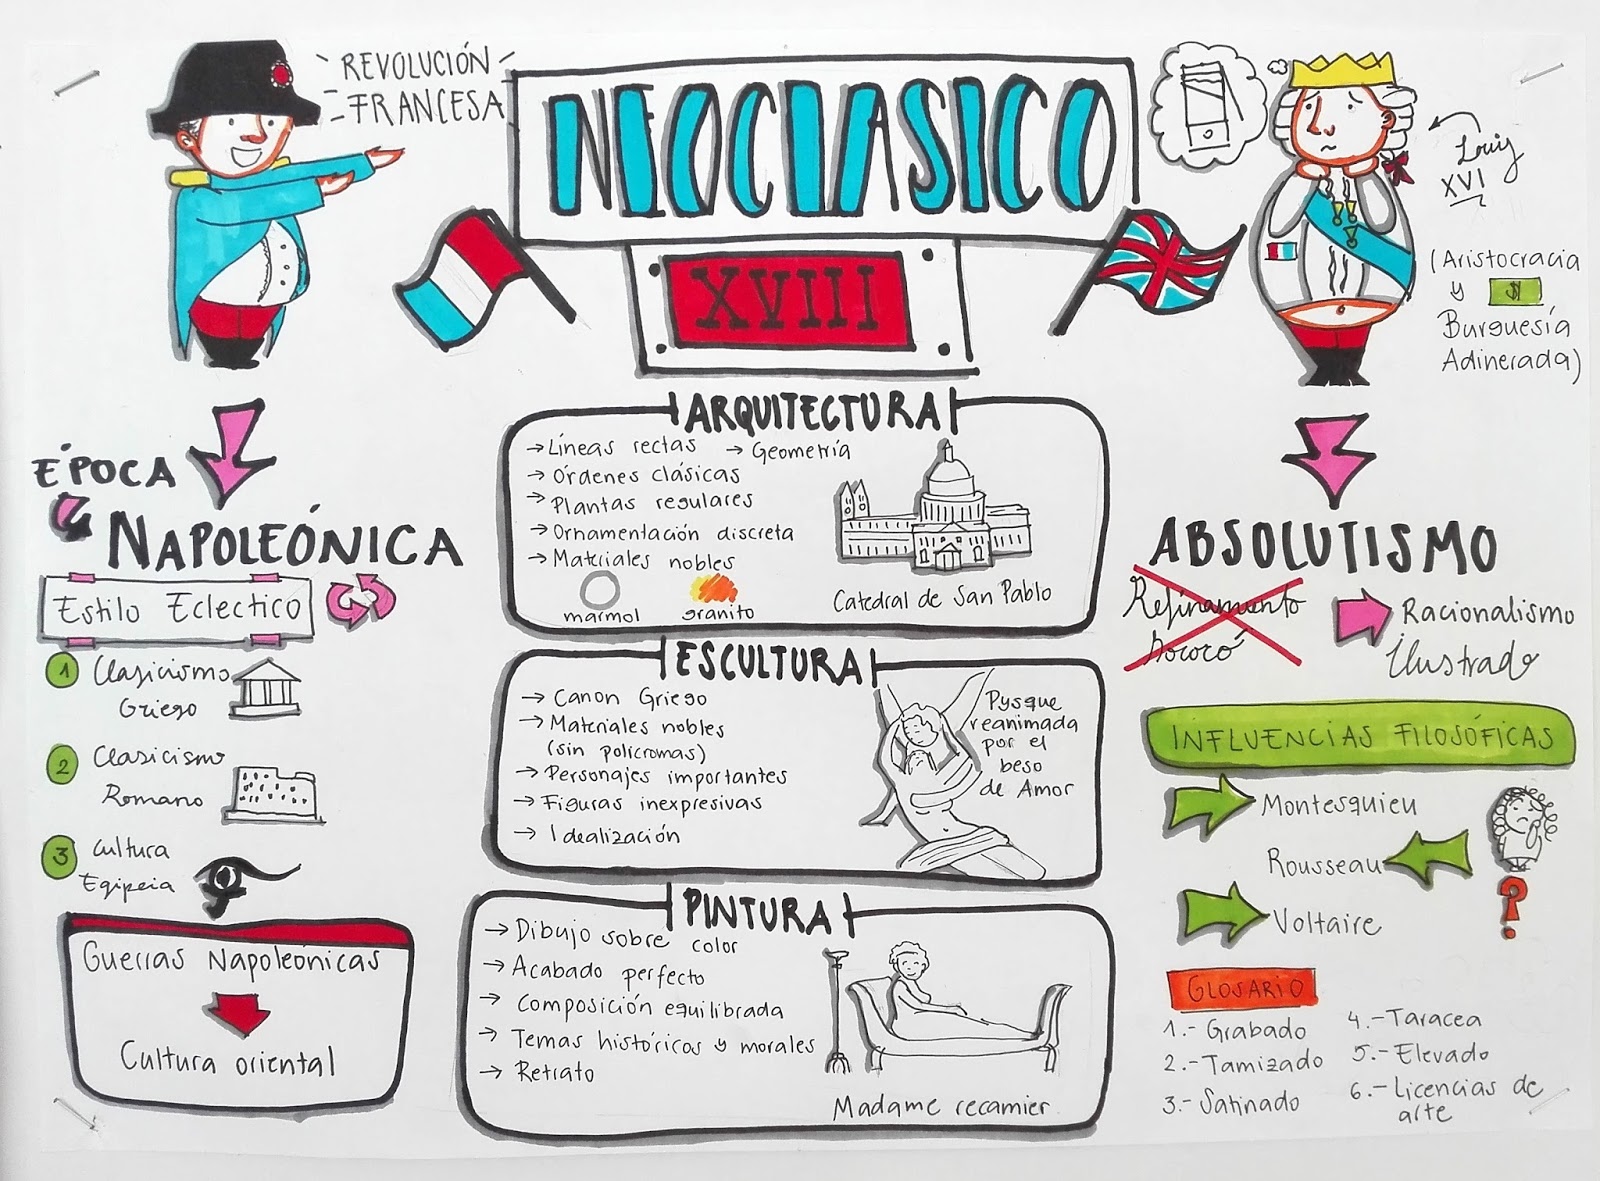 REVOLUCIÓN
FRANCESA
NEOCLASICO
XVIII
Louis
XVI
(Aristocracia
y $
Burguesía
Adinerada)
EPOCA
NAPOLEÓNICA
Estilo Eclectico
1 Clasicismo
Griego
2 Clasicismo
Romano
3 Cultura
Egipcia
Guerras Napoleónicas
Cultura oriental
ARQUITECTURA
→ Líneas rectas → Geometría
→ Órdenes clásicas
→ Plantas regulares
→ Ornamentación discreta
→ Materiales nobles
marmol granito
Catedral de San Pablo
ESCULTURA
→ Canon Griego
→ Materiales nobles
(sin polícromas)
→ Personajes importantes
→ Figuras inexpresivas
→ Idealización
Pysque
reanimada
por el
beso
de Amor
PINTURA
→ Dibujo sobre color
→ Acabado perfecto
→ Composición equilibrada
→ Temas históricos y morales
→ Retrato
Madame recamier
ABSOLUTISMO
Refinamiento
Rococó
Racionalismo
Ilustrado
INFLUENCIAS FILOSÓFICAS
Montesquieu
Rousseau
Voltaire
?
GLOSARIO
1.- Grabado
2.- Tamizado
3.- Satinado
4.- Taracea
5.- Elevado
6.- Licencias de
arte